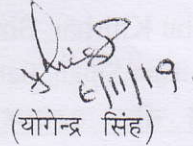 6/11/19
(योगेन्द्र सिंह)